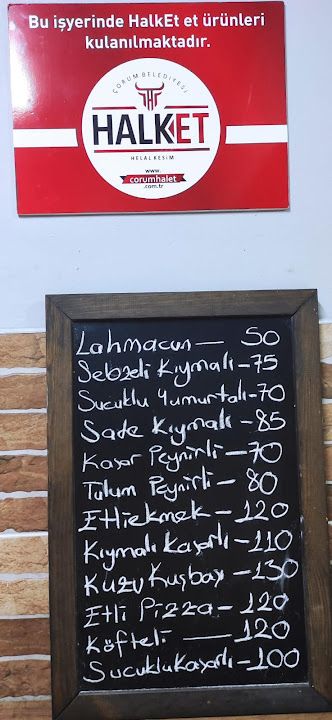 Bu işyerinde HalkEt et ürünleri
kulanılmaktadır.
ÇORUM BELEDİYESİ
HALKET
HELAL KESİM
www.
corumhalet
.com.tr
Lahmacun — 50
Sebzeli Kıymalı - 75
Sucuklu Yumurtalı - 70
Sade Kıymalı - 85
Kaşar Peynirli - 70
Tulum Peynirli - 80
Etliekmek - 120
Kıymalı Kaşarlı - 110
Kuzu Kuşbaşı - 130
Etli Pizza - 120
Köfteli — 120
Sucuklu Kaşarlı - 100